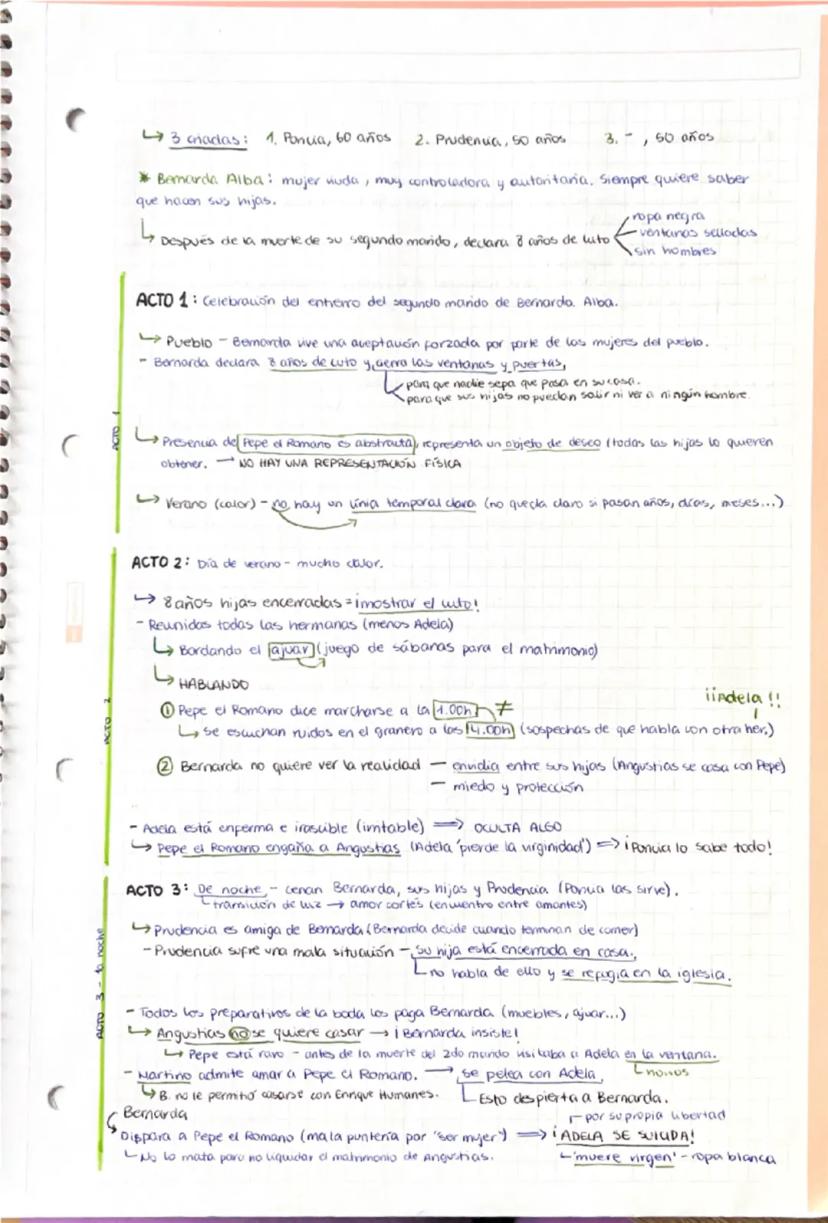 ↳ 3 criadas: 1. Poncia, 60 años 2. Prudencia, 50 años 3. - , 50 años
* Bernarda Alba: mujer viuda, muy controladora y autoritaria. Siempre quiere saber
que hacen sus hijas.
ropa negra
↳ Después de la muerte de su segundo marido, declara 8 años de luto — ventanas selladas
sin hombres
ACTO 1: Celebración del entierro del segundo marido de Bernarda Alba.
↳ Pueblo - Bernarda vive una aceptación forzada por parte de las mujeres del pueblo.
- Bernarda declara 8 años de luto y cierra las ventanas y puertas,
para que nadie sepa que pasa en su casa.
para que sus hijas no puedan salir ni ver a ningún hombre.
ACTO 1
↳ Presencia de Pepe el Romano es abstracta, representa un objeto de deseo (todas las hijas lo quieren
obtener. → NO HAY UNA REPRESENTACIÓN FÍSICA
↳ Verano (calor) - no hay un línia temporal clara (no queda claro si pasan años, días, meses...)
ACTO 2: Día de verano - mucho calor.
→ 8 años hijas encerradas = ¡mostrar el luto!
- Reunidas todas las hermanas (menos Adela)
↳ Bordando el ajuar (juego de sábanas para el matrimonio)
↳ HABLANDO
ACTO 2
¡¡Adela!!
① Pepe el Romano dice marcharse a la 1.00h ≠
↳ se escuchan ruidos en el granero a las 4.00h (sospechas de que habla con otra her.)
② Bernarda no quiere ver la realidad — envidia entre sus hijas (Angustias se casa con Pepe)
— miedo y protección
- Adela está enferma e irascible (irritable) ⟹ OCULTA ALGO
↳ Pepe el Romano engaña a Angustias (Adela 'pierde la virginidad') ⟹ ¡Poncia lo sabe todo!
ACTO 3: De noche, - cenan Bernarda, sus hijas y Prudencia (Poncia las sirve).
transición de luz → amor cortés (encuentro entre amantes)
↳ Prudencia es amiga de Bernarda (Bernarda decide cuando terminan de comer)
- Prudencia sufre una mala situación - su hija está encerrada en casa.,
no habla de ello y se refugia en la iglesia.
ACTO 3 - la noche
- Todos los preparativos de la boda los paga Bernarda (muebles, ajuar...)
↳ Angustias no se quiere casar → ¡Bernarda insiste!
↳ Pepe está raro - antes de la muerte del 2do marido visitaba a Adela en la ventana.
- Martirio admite amar a Pepe el Romano. → se pelea con Adela,
↳ B. no le permitió casarse con Enrique Humanes. Esto despierta a Bernarda.
Bernarda por su propia libertad
Dispara a Pepe el Romano (mala puntería por "ser mujer") ⟹ ¡ADELA SE SUICIDA!
No lo mata para no liquidar el matrimonio de Angustias. 'muere virgen' - ropa blanca